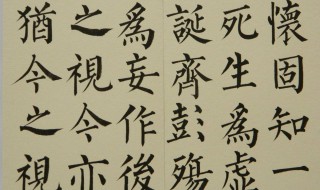 懷固知一
死生爲虛
誕齊彭殤
爲妄作後
之視今亦
猶今之視